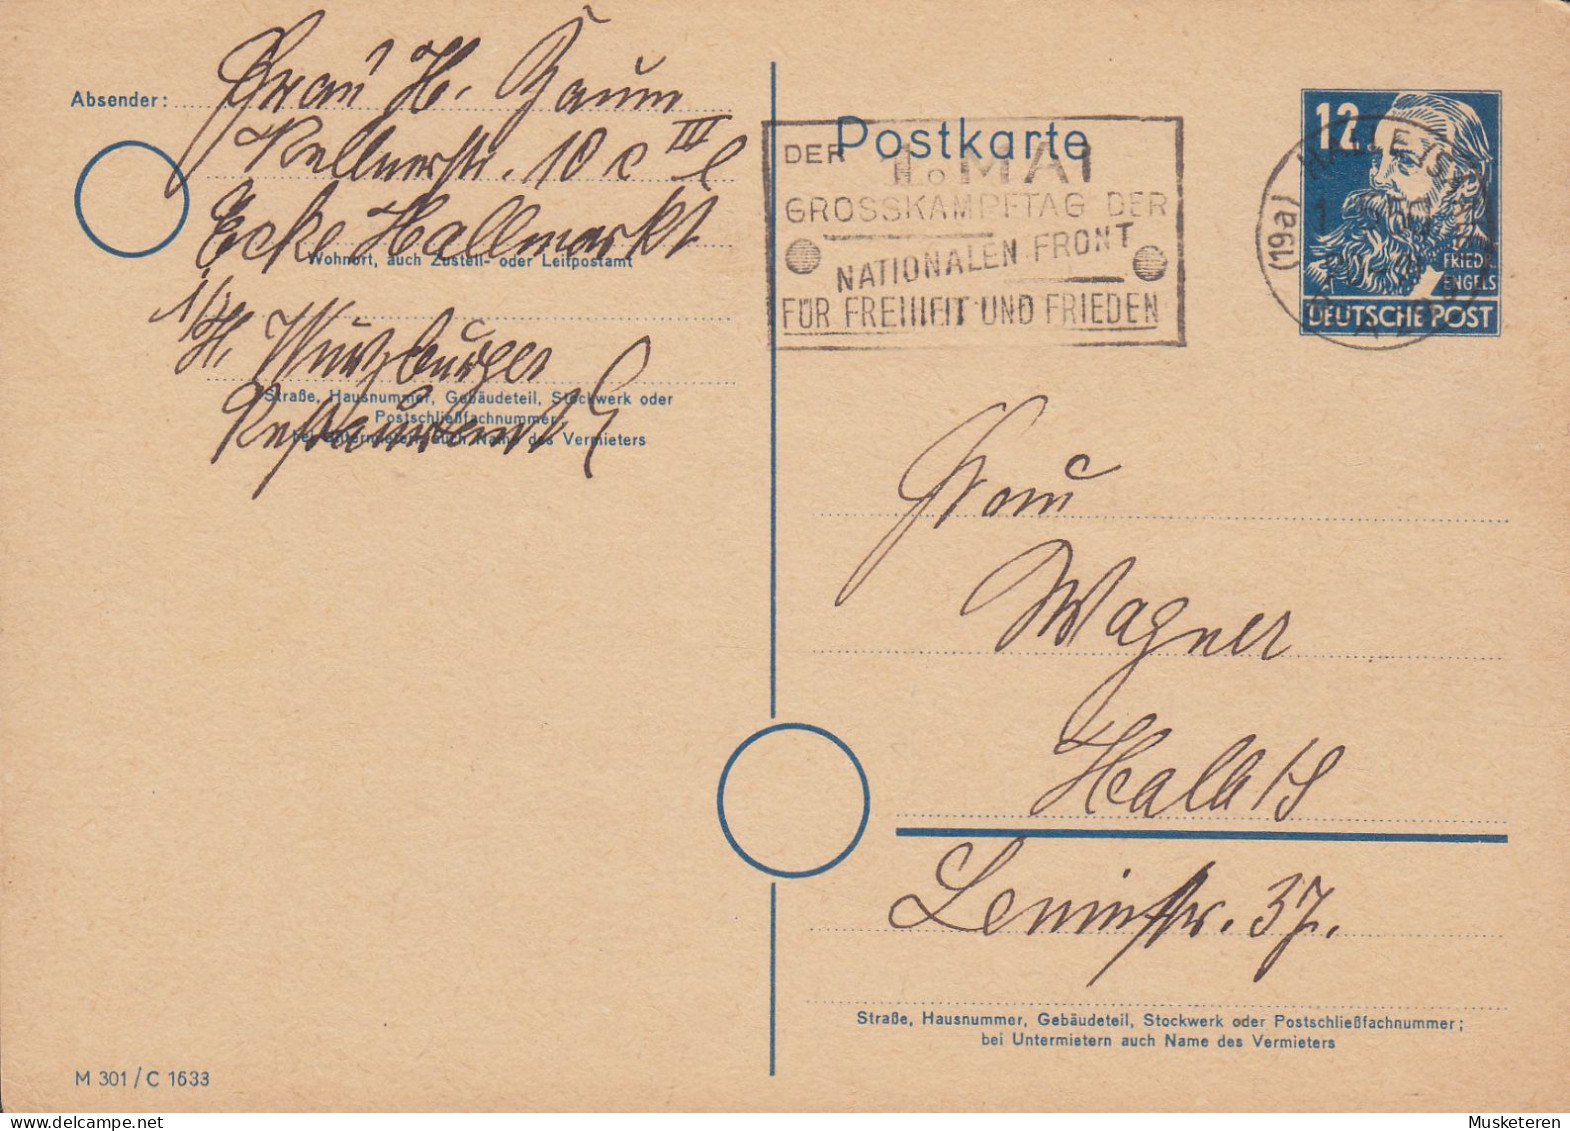 Absender: Frau H. Baum
Kellnerstr. 10 c III l
Ecke Hallmarkt
Wohnort, auch Zustell- oder Leitpostamt
Würzburger
Straße, Hausnummer, Gebäudeteil, Stockwerk oder
Postschließfachnummer
Restaurant
bei Untermietern auch Name des Vermieters
M 301 / C 1633
Postkarte
DER 1. MAI
GROSSKAMPFTAG DER
NATIONALEN FRONT
FÜR FREIHEIT UND FRIEDEN
(19a)
HALLE (SAALE)
12
FRIEDR.
ENGELS
DEUTSCHE POST
Frau
Wagner
Halle/S
Leninstr. 37.
Straße, Hausnummer, Gebäudeteil, Stockwerk oder Postschließfachnummer;
bei Untermietern auch Name des Vermieters
Musketeren